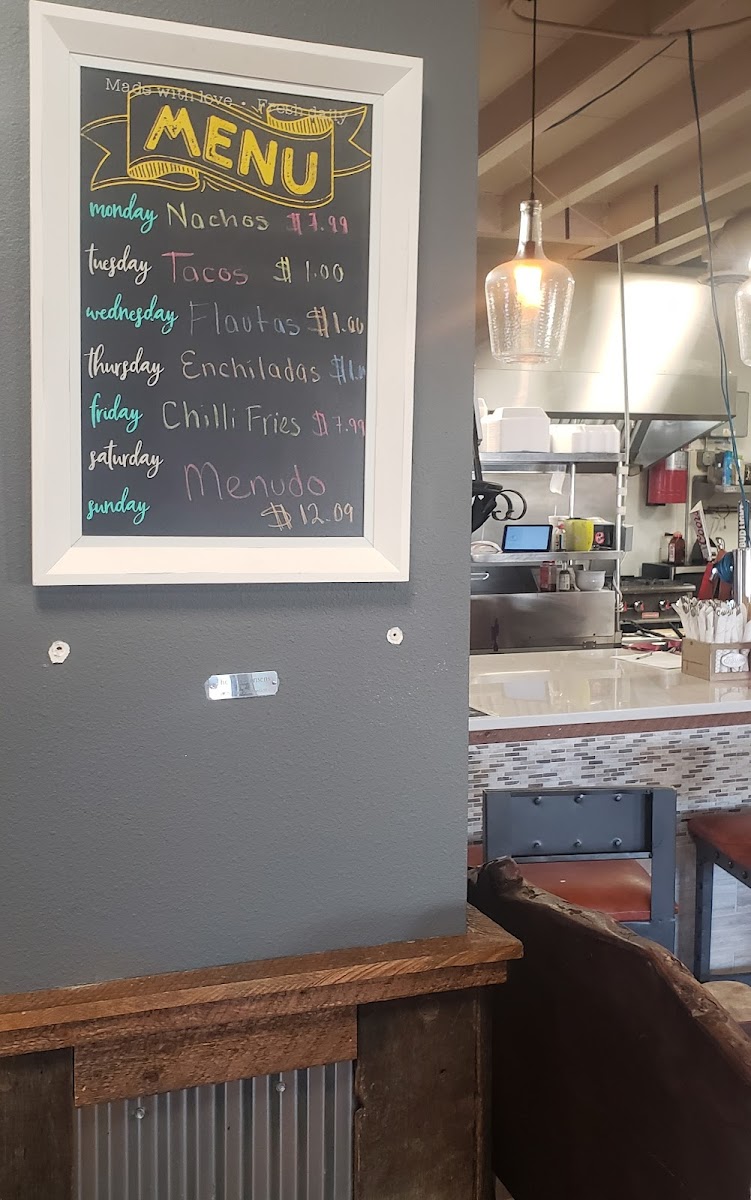 Made with love • Fresh daily
MENU
monday Nachos $7.99
tuesday Tacos $1.00
wednesday Flautas $1.00
thursday Enchiladas $1.
friday Chilli Fries $7.99
saturday
Menudo
sunday $12.09
BUD LIGHT